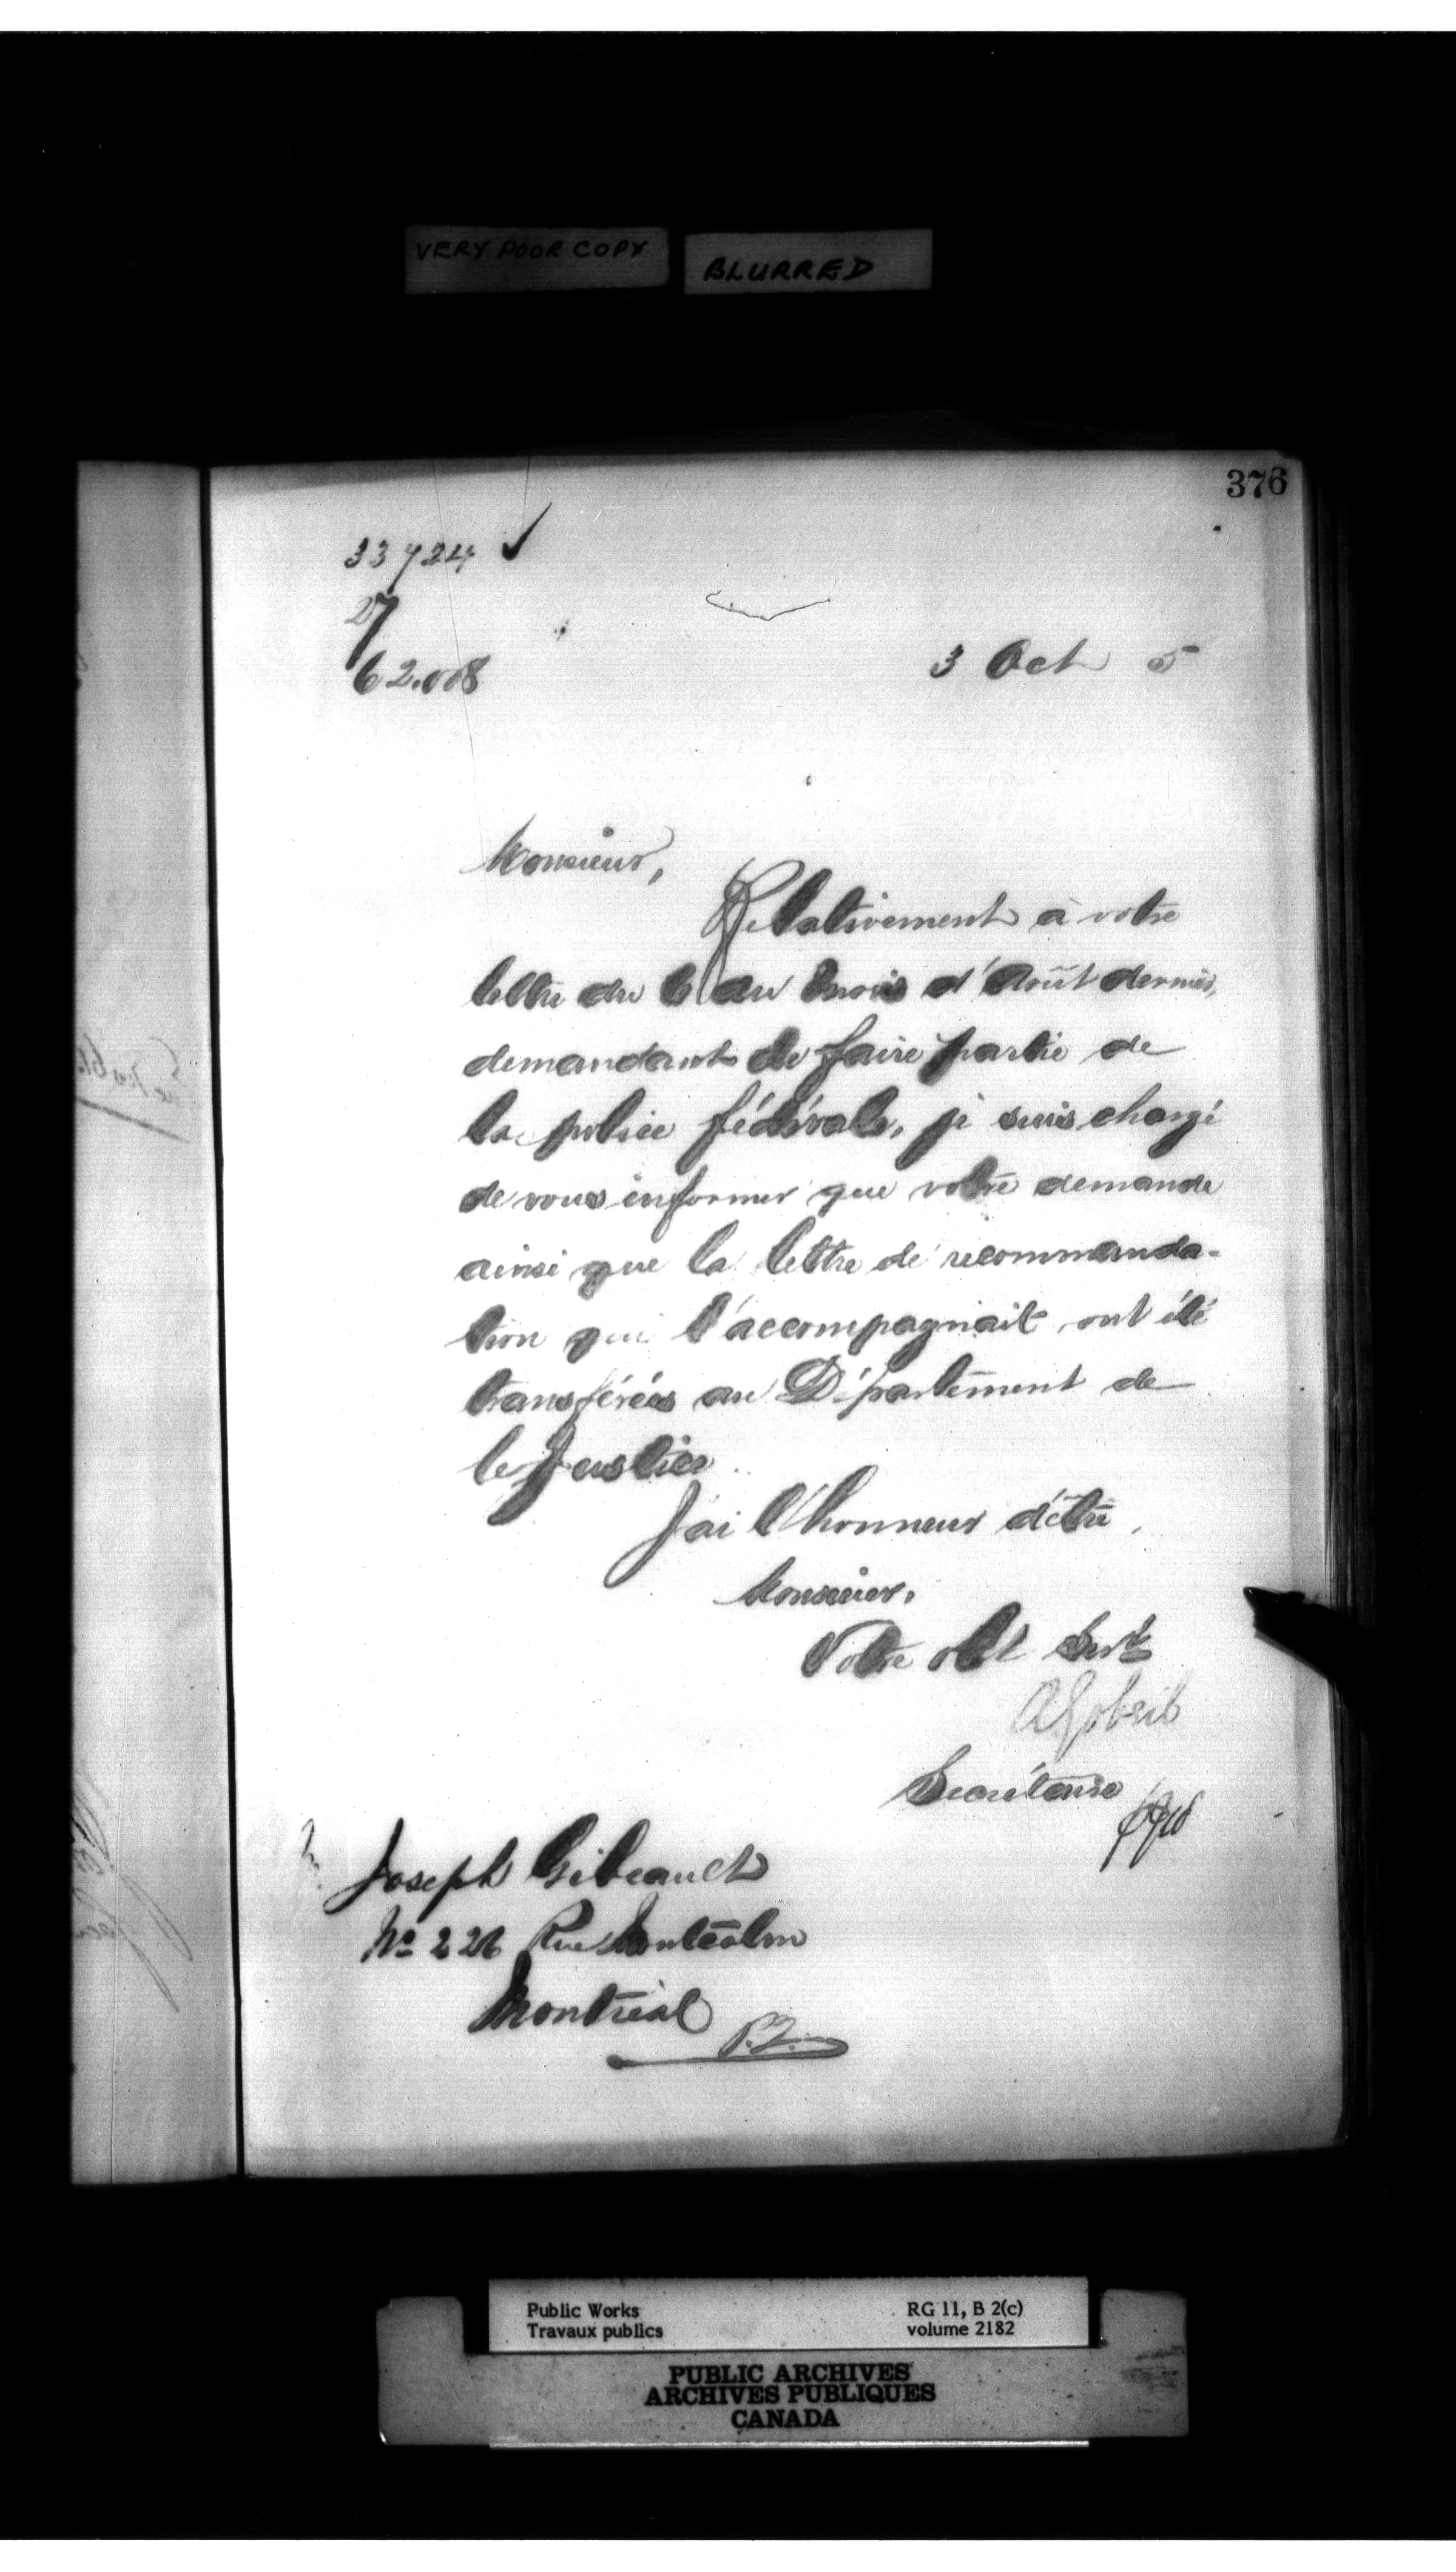 VERY POOR COPY
BLURRED
376
33724 ✓
27
62.008
3 Oct 5
Monsieur,
Relativement à votre
lettre du 6 du mois d'Août dernier,
demandant de faire partie de
la police fédérale, je suis chargé
de vous informer que votre demande
ainsi que la lettre de recommanda-
tion qui l'accompagnait, ont été
transférées au Département de
la Justice.
J'ai l'honneur d'être,
Monsieur,
Votre obt Servt
A Gobeil
Secrétaire
Joseph Gibeault
No 226 Rue Montcalm
Montréal
P.Q.
Public Works
Travaux publics
RG 11, B 2(c)
volume 2182
PUBLIC ARCHIVES
ARCHIVES PUBLIQUES
CANADA